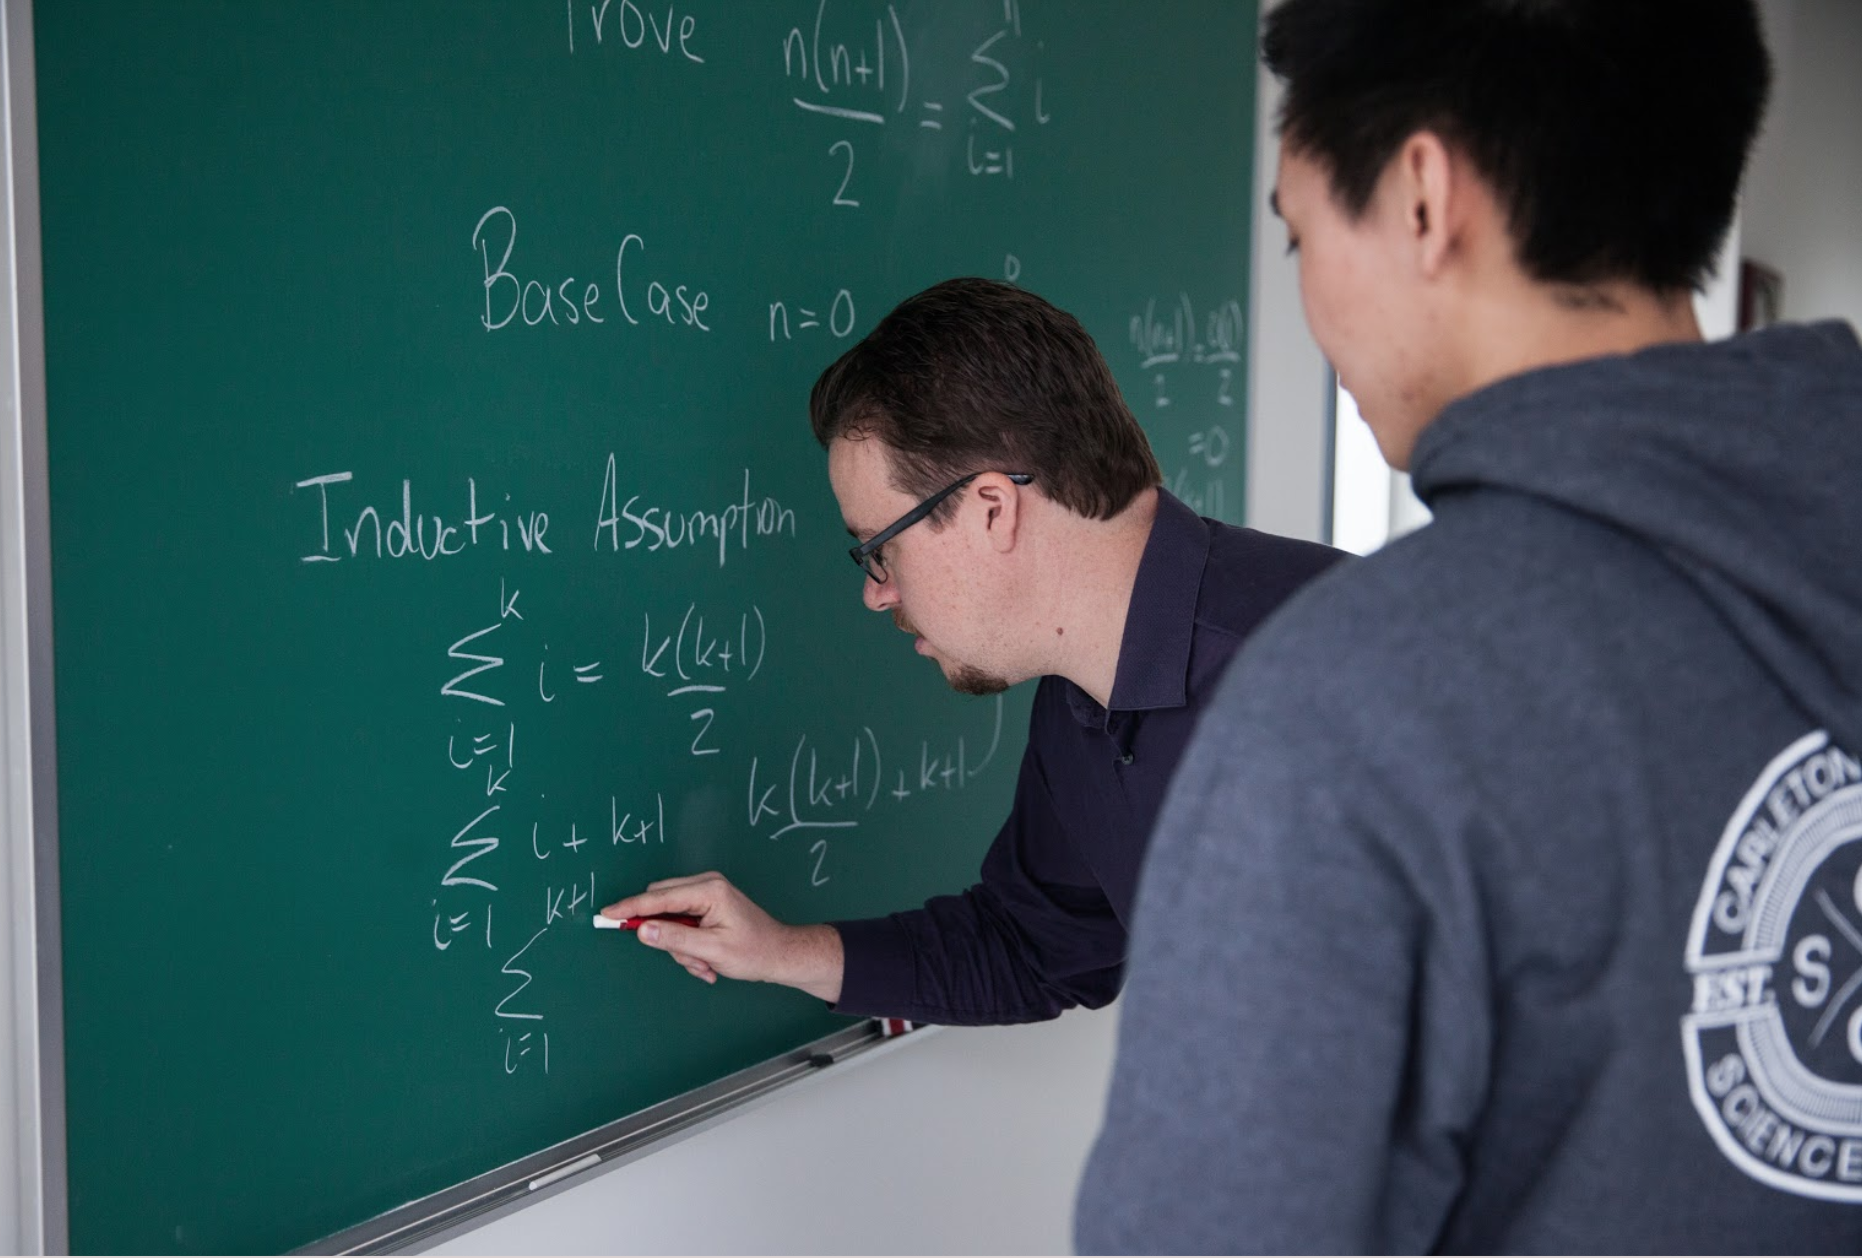 Prove n(n+1)/2 = n∑i=1 i
Base Case n=0 0
n(n+1)/2 = 0(1)/2
=0
Inductive Assumption
k∑i=1 i = k(k+1)/2
k∑i=1 i + k+1 k(k+1)/2 + k+1
k+1∑i=1
CARLETON
EST.
S
SCIENCE